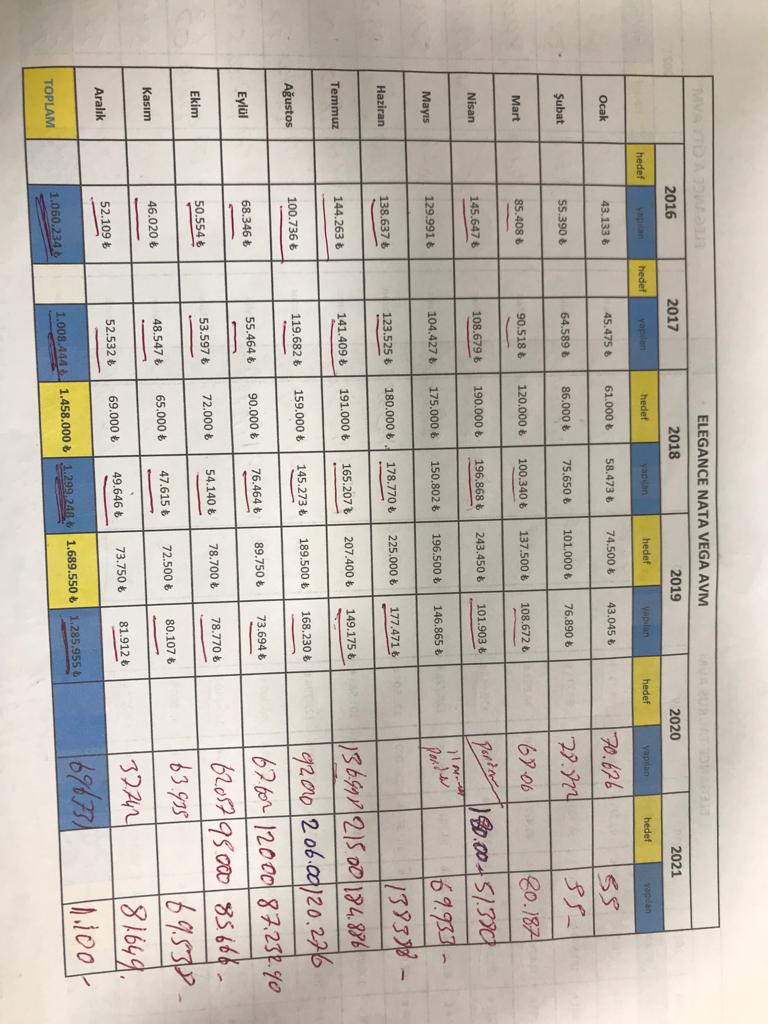 ELEGANCE NATA VEGA AVM
2016 2017 2018 2019 2020 2021
hedef yapılan hedef yapılan hedef yapılan hedef yapılan hedef yapılan hedef yapılan
Ocak 43.133 ₺ 45.475 ₺ 61.000 ₺ 58.473 ₺ 74.500 ₺ 43.045 ₺ 70.676 55
Şubat 55.390 ₺ 64.589 ₺ 86.000 ₺ 75.650 ₺ 101.000 ₺ 76.890 ₺ 55-
Mart 85.408 ₺ 90.518 ₺ 120.000 ₺ 100.340 ₺ 137.500 ₺ 108.672 ₺ 68.06 80.187
Nisan 145.647 ₺ 108.679 ₺ 190.000 ₺ 196.868 ₺ 243.450 ₺ 101.903 ₺ 180.00- 51.380
Mayıs 129.991 ₺ 104.427 ₺ 175.000 ₺ 150.802 ₺ 196.500 ₺ 146.865 ₺ 69.933-
Haziran 138.637 ₺ 123.525 ₺ 180.000 ₺ 178.770 ₺ 225.000 ₺ 177.471 ₺ 138388-
Temmuz 144.263 ₺ 141.409 ₺ 191.000 ₺ 165.207 ₺ 207.400 ₺ 149.175 ₺ 215.00 184.886
Ağustos 100.736 ₺ 119.682 ₺ 159.000 ₺ 145.273 ₺ 189.500 ₺ 168.230 ₺ 206.00 120.276
Eylül 68.346 ₺ 55.464 ₺ 90.000 ₺ 76.464 ₺ 89.750 ₺ 73.694 ₺ 67.602 12000 87.232.40
Ekim 50.554 ₺ 53.597 ₺ 72.000 ₺ 54.140 ₺ 78.700 ₺ 78.770 ₺ 62.057 95000 85.666-
Kasım 46.020 ₺ 48.547 ₺ 65.000 ₺ 47.615 ₺ 72.500 ₺ 80.107 ₺ 63.935 69.538-
Aralık 52.109 ₺ 52.532 ₺ 69.000 ₺ 49.646 ₺ 73.750 ₺ 81.912 ₺ 37.742 81.649.
TOPLAM 1.060.234 ₺ 1.008.444 ₺ 1.458.000 ₺ 1.299.248 ₺ 1.689.550 ₺ 1.285.955 ₺ 696731 1.100-